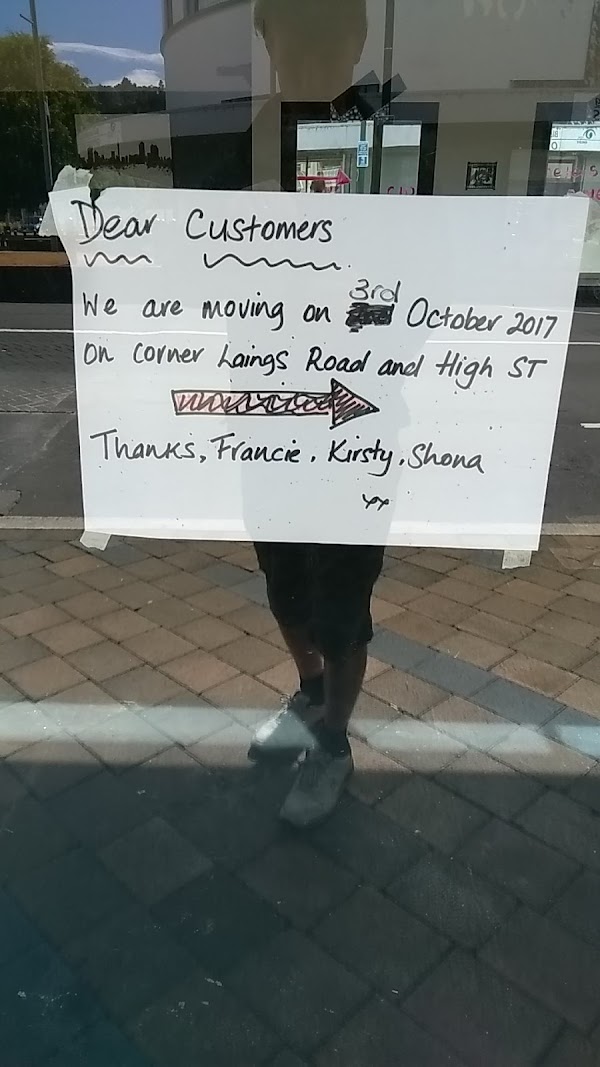 Dear Customers
We are moving on 3rd October 2017
on corner Laings Road and High ST
Thanks, Francie, Kirsty, Shona
xx